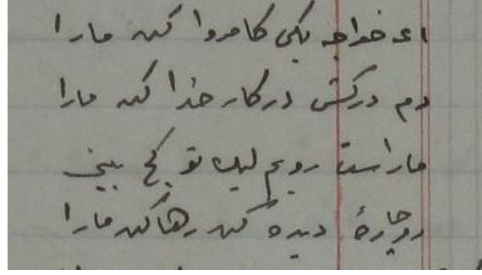 ای خواجه یکی کام روا کن ما را
دم درکش و در کار خدا کن ما را
ما راست رویم لیک تو کج بینی
رو چارهٔ دیده کن رها کن ما را